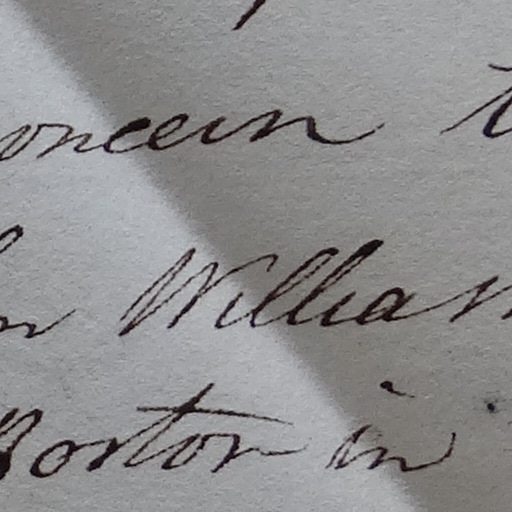 oncern t
n William
Boston in